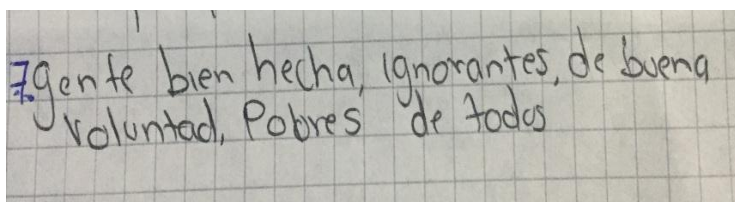 7. gente bien hecha, ignorantes, de buena
voluntad, Pobres de todos